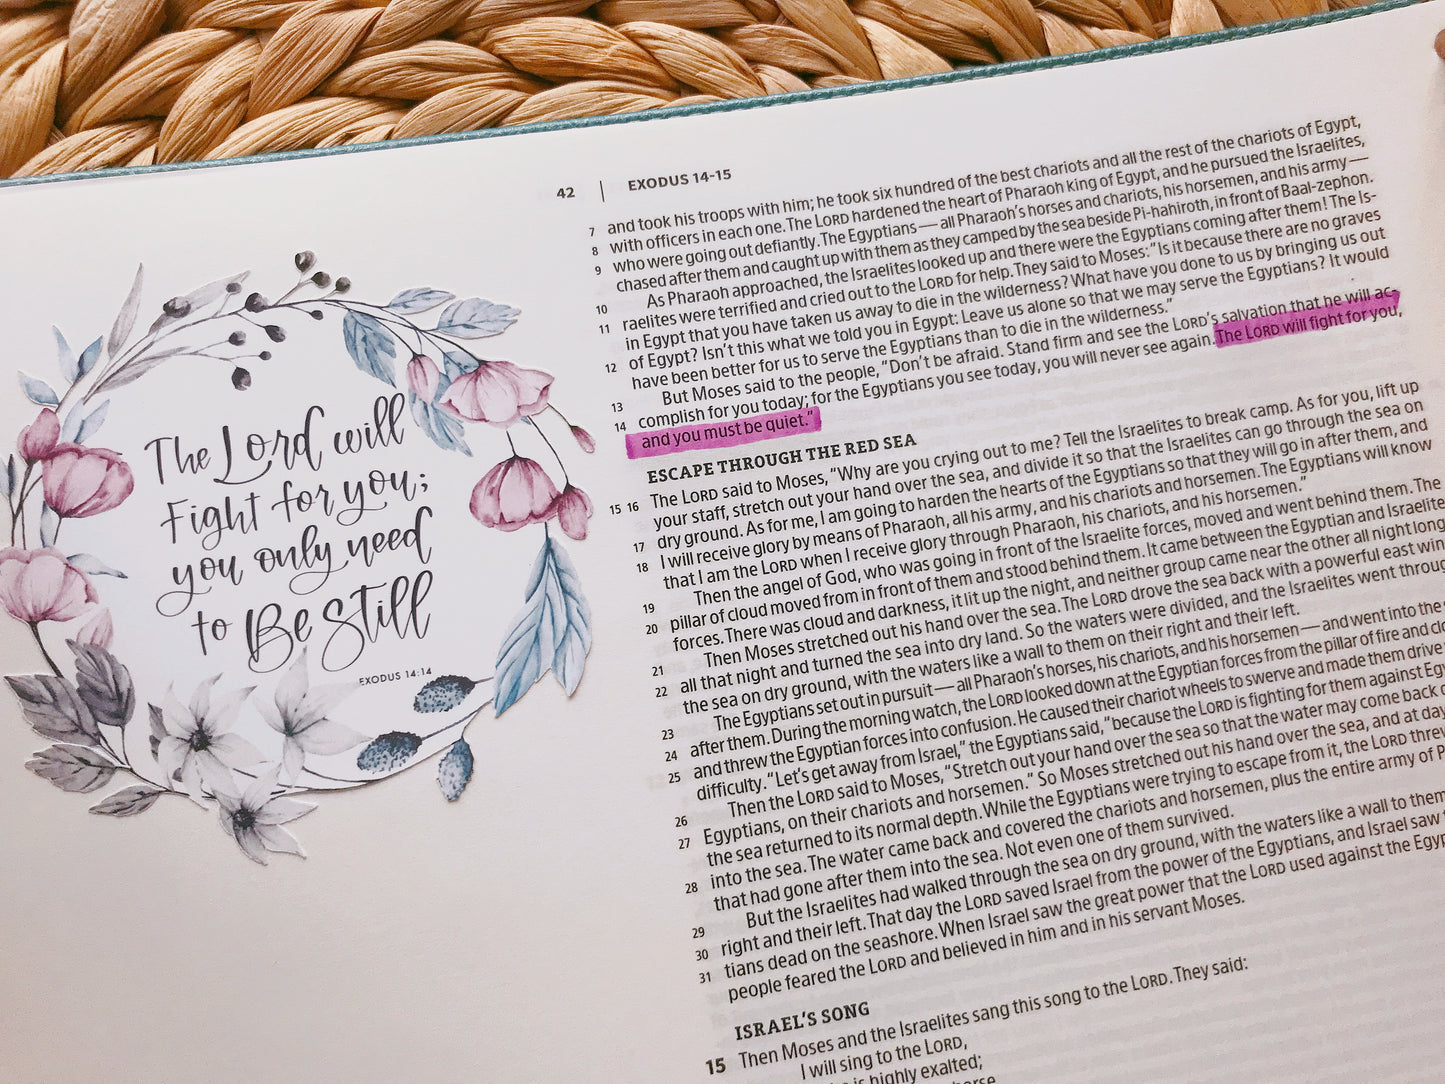 The Lord will
Fight for you;
you only need
to Be Still
EXODUS 14:14
42 | EXODUS 14-15
7 and took his troops with him; he took six hundred of the best chariots and all the rest of the chariots of Egypt,
8 with officers in each one. The LORD hardened the heart of Pharaoh king of Egypt, and he pursued the Israelites,
9 who were going out defiantly. The Egyptians — all Pharaoh's horses and chariots, his horsemen, and his army —
chased after them and caught up with them as they camped by the sea beside Pi-hahiroth, in front of Baal-zephon.
10 As Pharaoh approached, the Israelites looked up and there were the Egyptians coming after them! The Is-
11 raelites were terrified and cried out to the LORD for help. They said to Moses: "Is it because there are no graves
in Egypt that you have taken us away to die in the wilderness? What have you done to us by bringing us out
12 of Egypt? Isn't this what we told you in Egypt: Leave us alone so that we may serve the Egyptians? It would
have been better for us to serve the Egyptians than to die in the wilderness."
13 But Moses said to the people, "Don't be afraid. Stand firm and see the LORD's salvation that he will ac-
14 complish for you today; for the Egyptians you see today, you will never see again. The LORD will fight for you,
and you must be quiet."
ESCAPE THROUGH THE RED SEA
15 16 The LORD said to Moses, "Why are you crying out to me? Tell the Israelites to break camp. As for you, lift up
your staff, stretch out your hand over the sea, and divide it so that the Israelites can go through the sea on
17 dry ground. As for me, I am going to harden the hearts of the Egyptians so that they will go in after them, and
18 I will receive glory by means of Pharaoh, all his army, and his chariots and horsemen. The Egyptians will know
that I am the LORD when I receive glory through Pharaoh, his chariots, and his horsemen."
19 Then the angel of God, who was going in front of the Israelite forces, moved and went behind them. The
20 pillar of cloud moved from in front of them and stood behind them. It came between the Egyptian and Israelite
forces. There was cloud and darkness, it lit up the night, and neither group came near the other all night long.
21 Then Moses stretched out his hand over the sea. The LORD drove the sea back with a powerful east
22 all that night and turned the sea into dry land. So the waters were divided, and the Israelites went
the sea on dry ground, with the waters like a wall to them on their right and their left.
23 The Egyptians set out in pursuit — all Pharaoh's horses, his chariots, and his horsemen — and went into the
24 after them. During the morning watch, the LORD looked down at the Egyptian forces from the pillar of fire and
25 and threw the Egyptian forces into confusion. He caused their chariot wheels to swerve and made them drive
difficulty. "Let's get away from Israel," the Egyptians said, "because the LORD is fighting for them against
26 Then the LORD said to Moses, "Stretch out your hand over the sea so that the water may come back
27 Egyptians, on their chariots and horsemen." So Moses stretched out his hand over the sea, and at
the sea returned to its normal depth. While the Egyptians were trying to escape from it, the LORD
28 into the sea. The water came back and covered the chariots and horsemen, plus the entire army of
that had gone after them into the sea. Not even one of them survived.
29 But the Israelites had walked through the sea on dry ground, with the waters like a wall to them
30 right and their left. That day the LORD saved Israel from the power of the Egyptians, and Israel saw
31 tians dead on the seashore. When Israel saw the great power that the LORD used against the
people feared the LORD and believed in him and in his servant Moses.
ISRAEL'S SONG
15 Then Moses and the Israelites sang this song to the LORD. They said:
I will sing to the LORD,
is highly exalted;